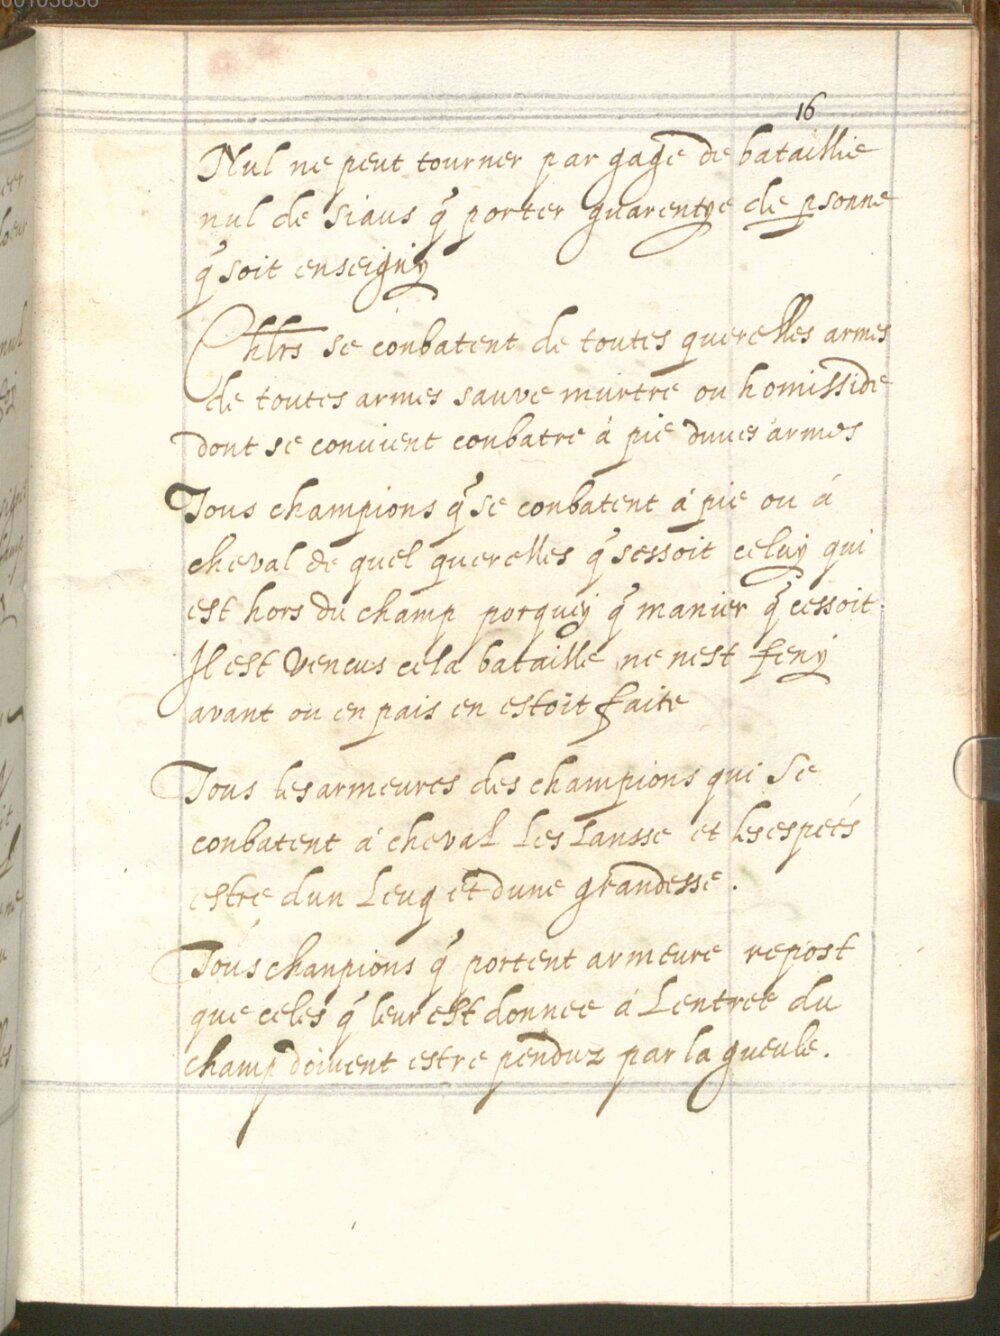 16
Nul ne peut tourner par gage de bataillie
nul de siaus q̃ porter guarentye de psonne
q̃ soit enseigny
Chlrs se conbatent de toutes querelles armes
de toutes armes sauve murtre ou homisside
dont se convient conbatre á pie dunes armes
Tous champions q̃ se conbatent á pie ou á
cheval de quel querelles q̃ sessoit celuy qui
est hors du champ porquey q̃ manier q̃ cessoit
Il est vencus ce la bataille ne nest feny
avant ou en pais en estoit faite
Tous les armeures des champions qui se
conbatent á cheval les lansse et les espeés
estre dun leug et dune grandesse.
Tous chanpions q̃ portent armeure repost
que celes q̃ leur est donnee á Lentree du
champ doivent estre penduz par la gueule.